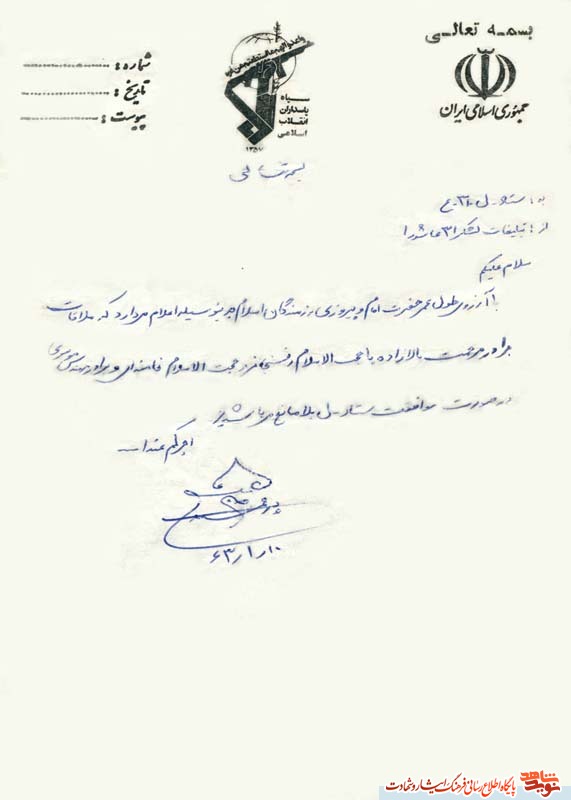 بسمه تعالی
جمهوری اسلامی ایران
سپاه
پاسداران
انقلاب
اسلامی
۱۳۵۷
شماره :
تاریخ :
پیوست :
بسمه تعالی
به : ستاد ل ۳۱ ع
از : تبلیغات لشکر ۳۱ عاشورا
سلام علیکم
با آرزوی طول عمر حضرت امام و پیروزی رزمندگان اسلام بدینوسیله اعلام میدارد که ملاقات
برادر رحمت بالازاده با حجت الاسلام رفسنجانی و حجت الاسلام خامنه‌ای و برادر مهندس موسوی
در صورت موافقت ستاد ل بلامانع می باشد
اجرکم عندالله
۶۳/۱/۱۰
نوید شاهد
پایگاه اطلاع رسانی فرهنگ ایثار و شهادت